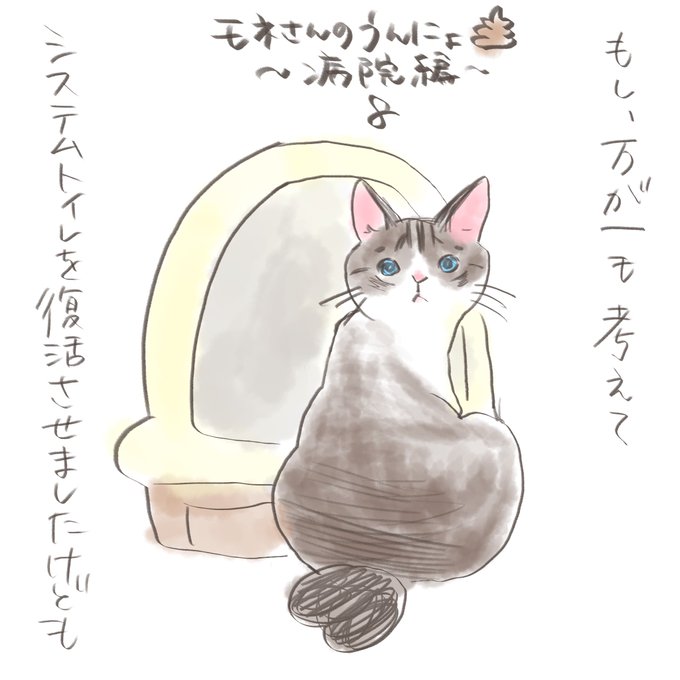 モネさんのうんにょ
～病院編～
8
もし、万が一も考えて
システムトイレを復活させましたけども